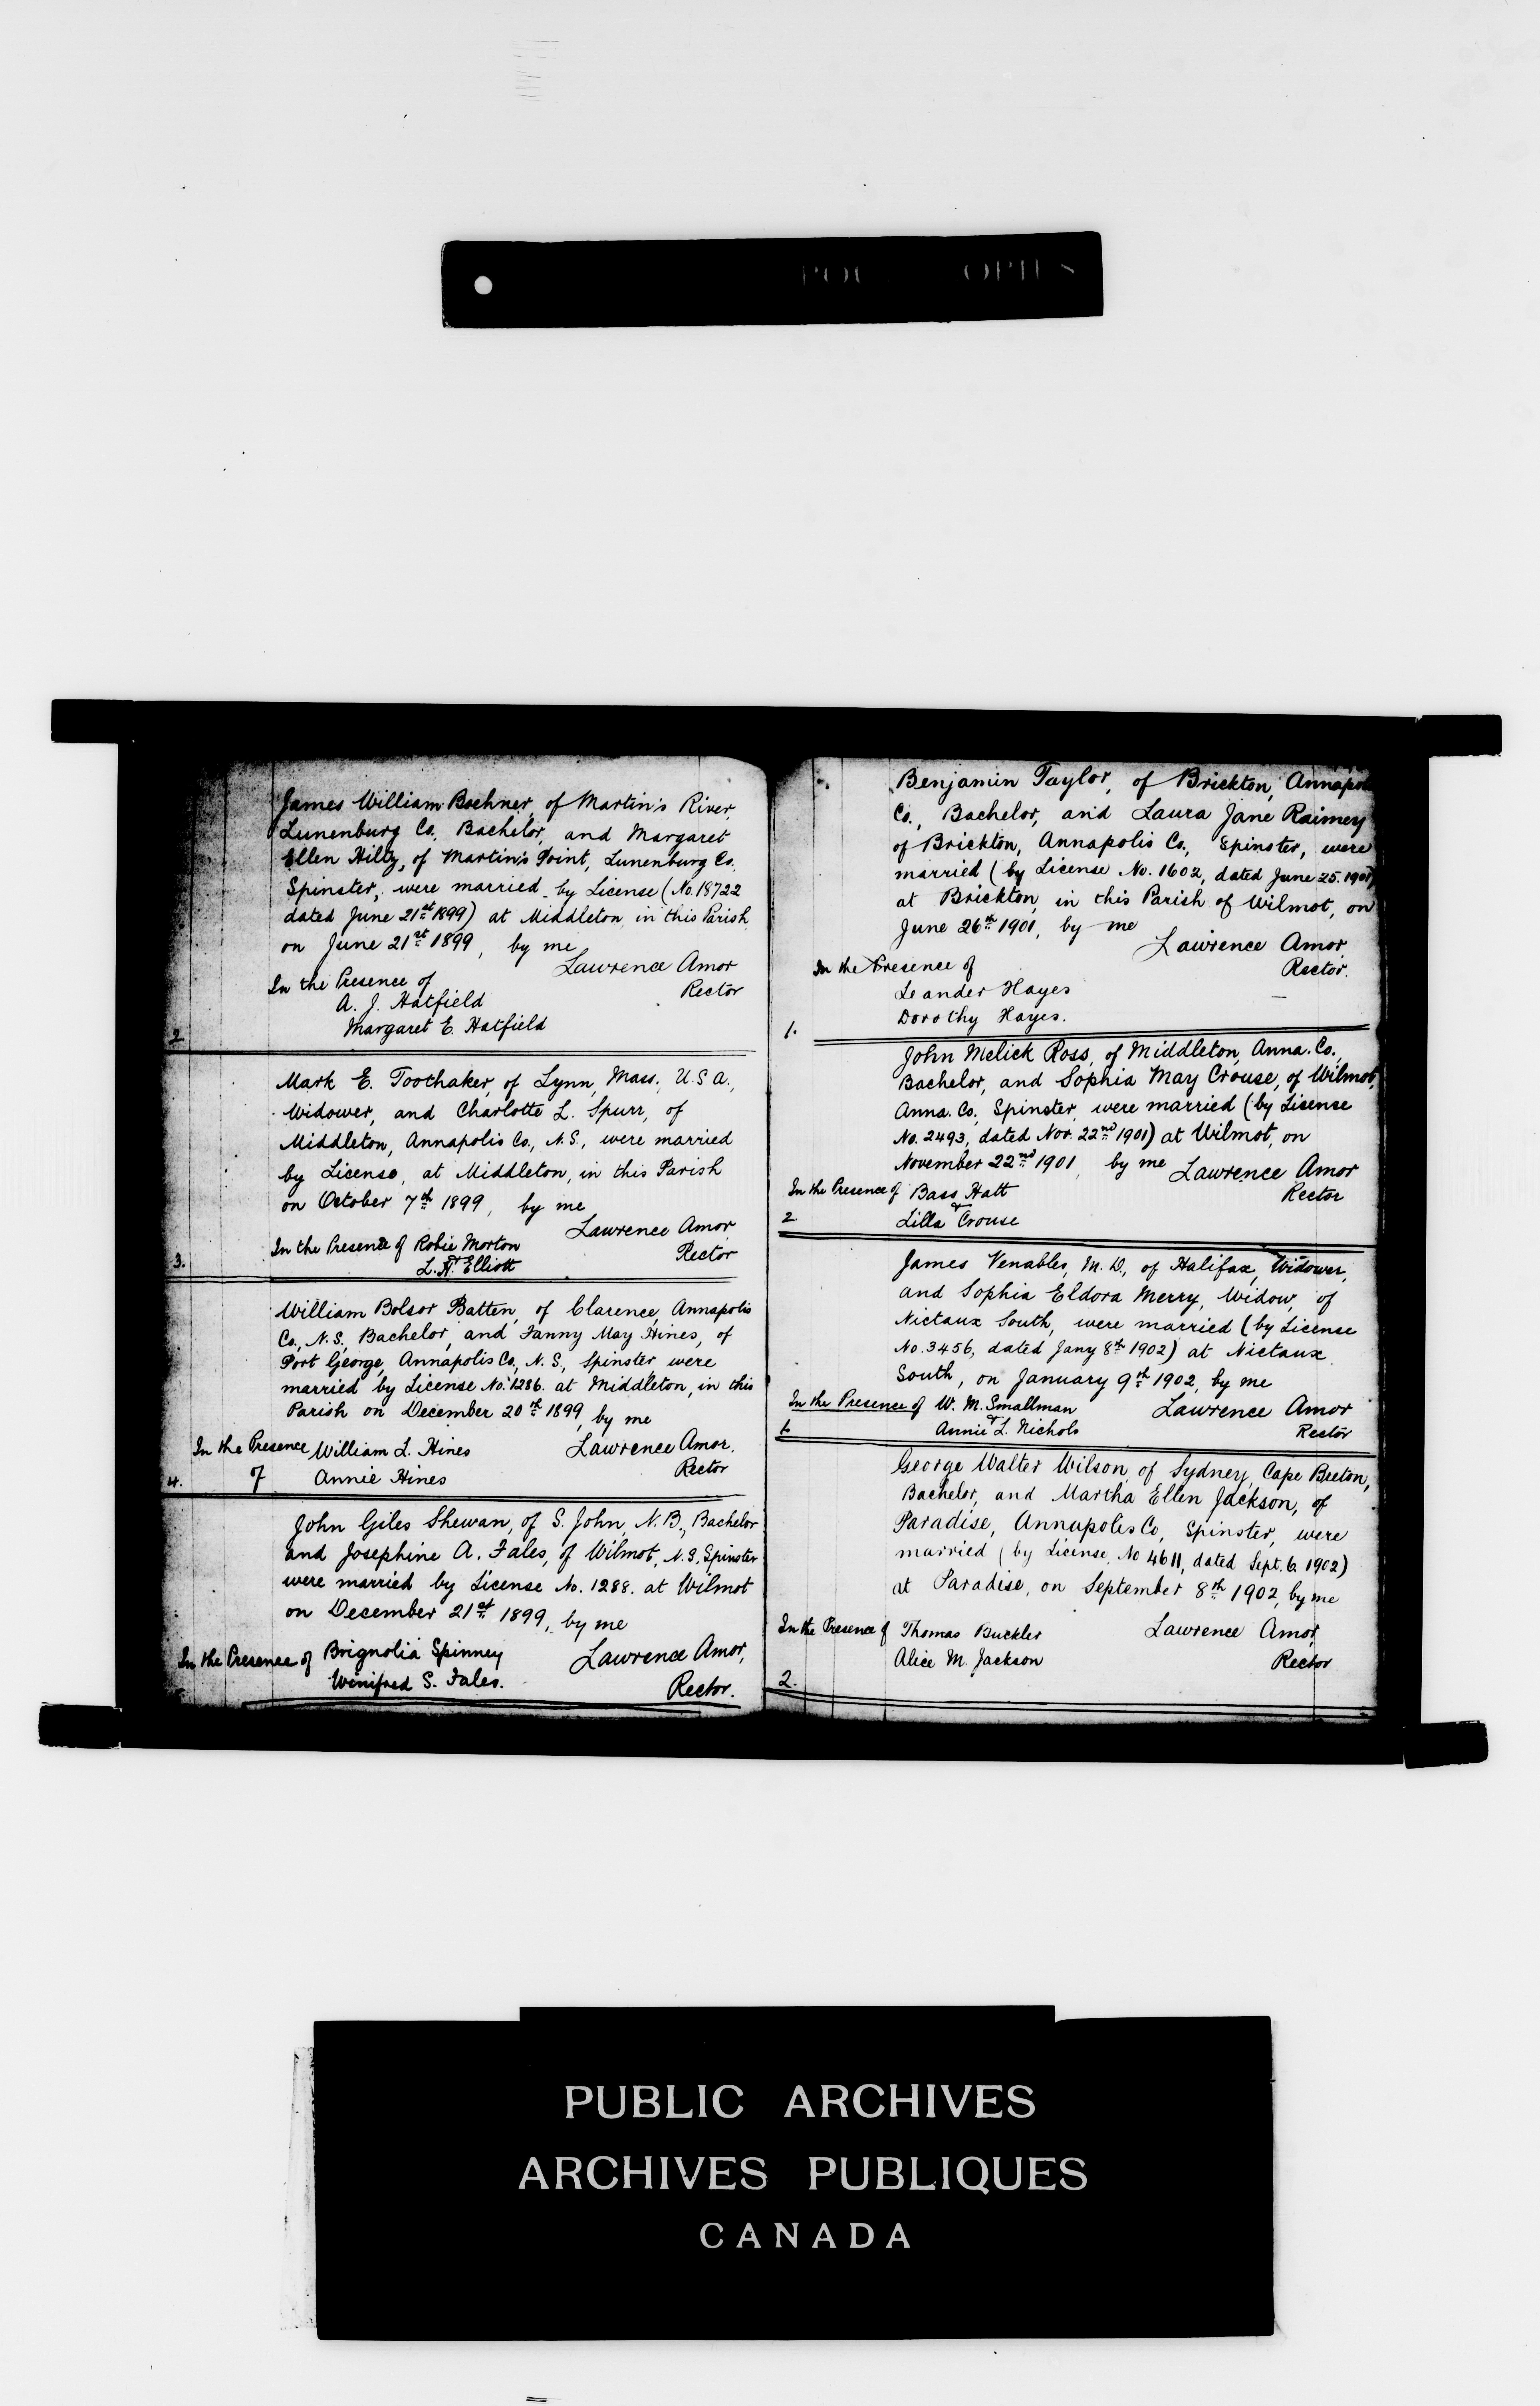 James William Boehner, of Martin's River,
Lunenburg Co. Bachelor, and Margaret
Ellen Hilty, of Martin's Point, Lunenburg Co.
Spinster, were married by License (No. 18722
dated June 21st 1899) at Middleton in this Parish
on June 21st 1899, by me
Lawrence Amor
Rector
In the Presence of
A. J. Hatfield
Margaret E. Hatfield
2
Mark E. Toothaker, of Lynn, Mass., U.S.A.,
Widower, and Charlotte L. Spurr, of
Middleton, Annapolis Co., N.S., were married
by License, at Middleton, in this Parish
on October 7th 1899, by me
Lawrence Amor
Rector
In the Presence of Robie Morton
&
L. H. Elliott
3.
William Bolsor Batten, of Clarence, Annapolis
Co., N.S., Bachelor, and Fanny May Hines, of
Port George, Annapolis Co., N.S., Spinster, were
married by License No. 1286. at Middleton, in this
Parish on December 20th 1899, by me
In the Presence William L. Hines
Lawrence Amor.
of Annie Hines
Rector
4.
John Giles Shewan, of S. John, N.B., Bachelor
and Josephine A. Fales, of Wilmot, N.S, Spinster
were married by License No. 1288. at Wilmot
on December 21st 1899, by me
In the Presence of Brignolia Spinney
Lawrence Amor,
Winifred S. Fales.
Rector.
Benjamin Taylor, of Brickton, Annapol
Co., Bachelor, and Laura Jane Raimey
of Brickton, Annapolis Co., Spinster, were
married (by License No. 1602, dated June 25. 1901)
at Brickton, in this Parish of Wilmot, on
June 26th 1901, by me
Lawrence Amor
Rector.
In the Presence of
Leander Hayes
Dorothy Hayes.
1.
John Melick Ross, of Middleton, Anna. Co.,
Bachelor, and Sophia May Crouse, of Wilmot,
Anna. Co. Spinster, were married (by License
No. 2493, dated Nov. 22nd 1901) at Wilmot, on
November 22nd 1901, by me Lawrence Amor
Rector
In the Presence of Bass Hatt
&
2 Lilla Crouse
James Venables, M.D., of Halifax, Widower,
and Sophia Eldora Merry, Widow, of
Nictaux South, were married (by License
No. 3456, dated Jany 8th 1902) at Nictaux
South, on January 9th 1902, by me
In the Presence of W. M. Smallman
Lawrence Amor
&
1. Annie L. Nichols
Rector
George Walter Wilson, of Sydney, Cape Breton,
Bachelor, and Martha Ellen Jackson, of
Paradise, Annapolis Co, Spinster, were
married (by License, No 4611, dated Sept. 6. 1902)
at Paradise, on September 8th 1902, by me
In the Presence of Thomas Buckler
Lawrence Amor,
Alice M. Jackson
Rector
2.
PUBLIC ARCHIVES
ARCHIVES PUBLIQUES
CANADA